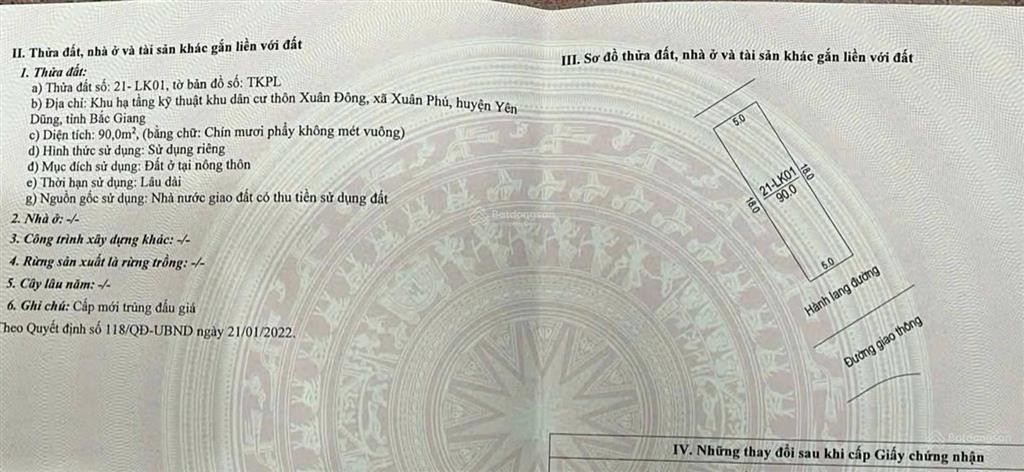 II. Thửa đất, nhà ở và tài sản khác gắn liền với đất
1. Thửa đất:
a) Thửa đất số: 21- LK01, tờ bản đồ số: TKPL
b) Địa chỉ: Khu hạ tầng kỹ thuật khu dân cư thôn Xuân Đông, xã Xuân Phú, huyện Yên
Dũng, tỉnh Bắc Giang
c) Diện tích: 90,0m², (bằng chữ: Chín mươi phẩy không mét vuông)
d) Hình thức sử dụng: Sử dụng riêng
đ) Mục đích sử dụng: Đất ở tại nông thôn
e) Thời hạn sử dụng: Lâu dài
g) Nguồn gốc sử dụng: Nhà nước giao đất có thu tiền sử dụng đất
2. Nhà ở: -/-
3. Công trình xây dựng khác: -/-
4. Rừng sản xuất là rừng trồng: -/-
5. Cây lâu năm: -/-
6. Ghi chú: Cấp mới trúng đấu giá
Theo Quyết định số 118/QĐ-UBND ngày 21/01/2022.
III. Sơ đồ thửa đất, nhà ở và tài sản khác gắn liền với đất
5.0
21-LK01
90.0
18.0
18.0
5.0
Hành lang đường
Đường giao thông
IV. Những thay đổi sau khi cấp Giấy chứng nhận
Batdongsan
Batdongsan